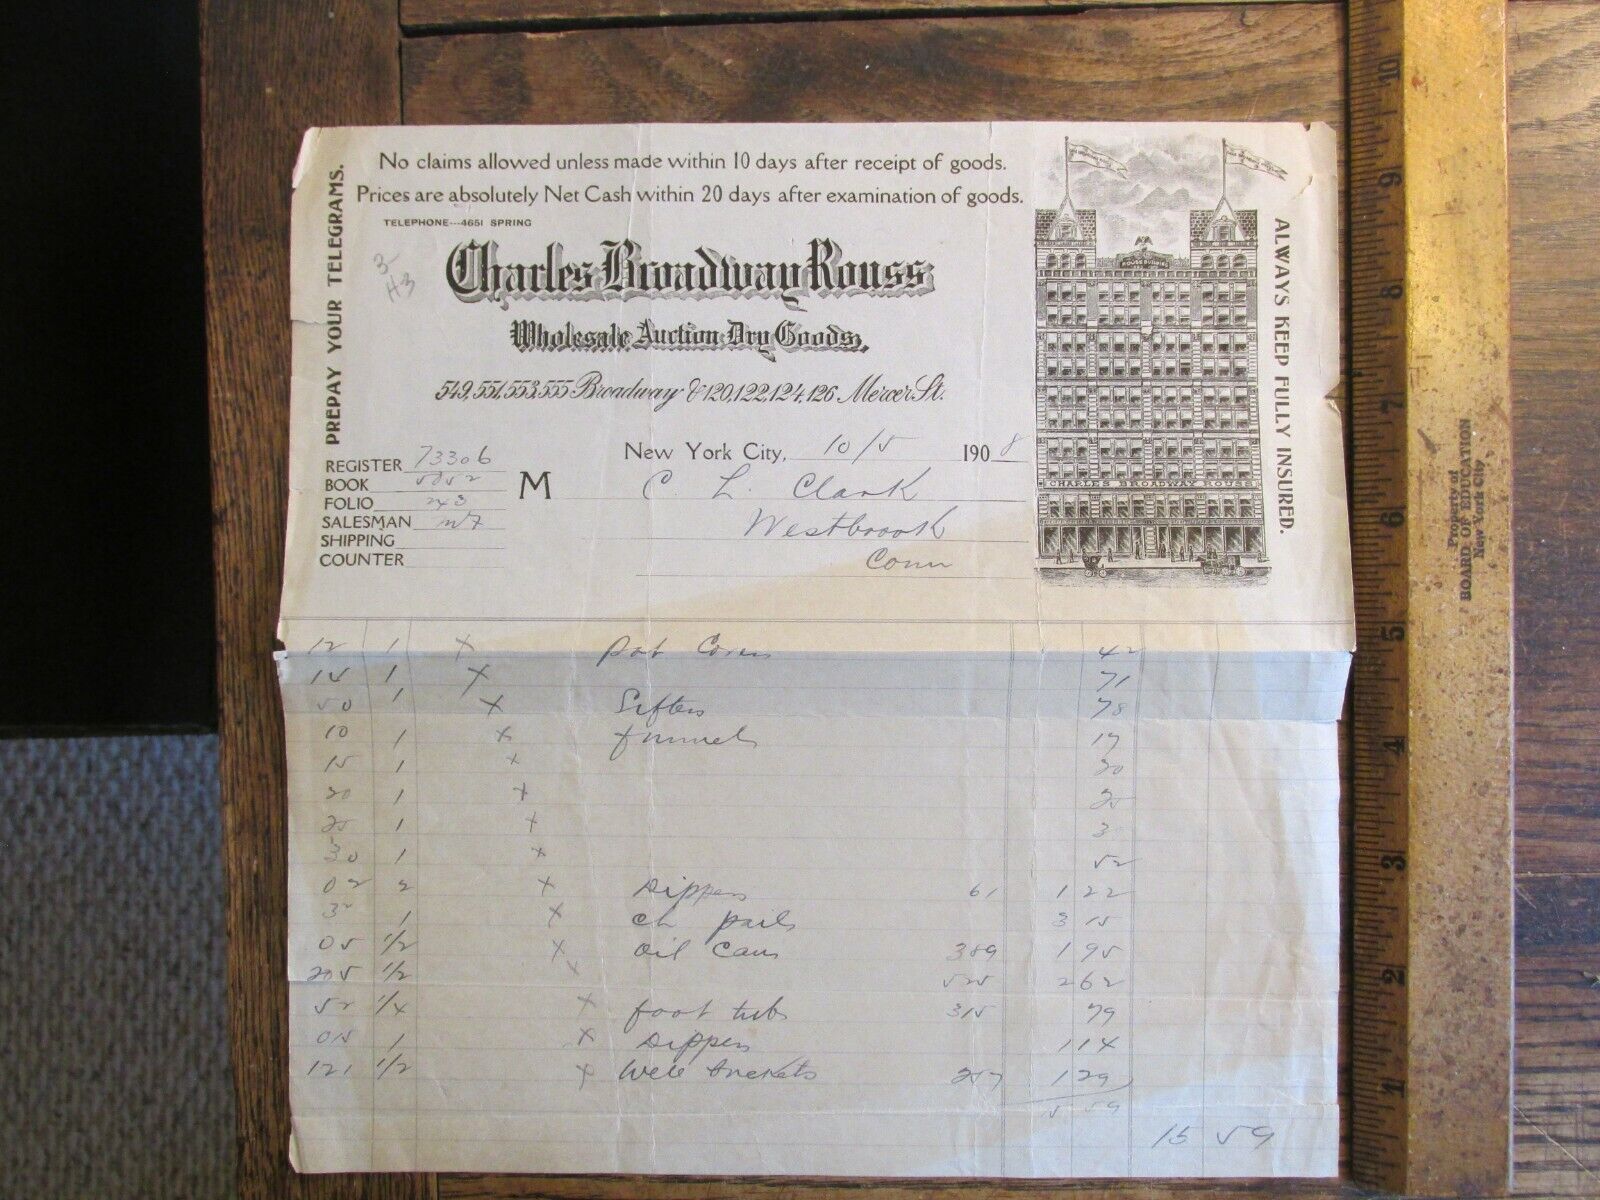 No claims allowed unless made within 10 days after receipt of goods.
Prices are absolutely Net Cash within 20 days after examination of goods.
TELEPHONE---4651 SPRING
PREPAY YOUR TELEGRAMS.
3-
43
Charles Broadway Rouss
Wholesale Auction Dry Goods,
549, 551, 553, 555 Broadway & 120, 122, 124, 126 Mercer St.
ALWAYS KEEP FULLY INSURED.
CHARLES BROADWAY ROUSS
New York City, 10/5 1908
REGISTER 73306
BOOK 5052
FOLIO 243
SALESMAN
SHIPPING
COUNTER
M C. L. Clark
Westbrook
Conn
12 1 x Pot Covers 42
15 1 x 71
50 1 x Sifters 78
10 1 x funnels 17
15 1 x 20
20 1 x 25
25 1 x 3
30 1 x 52
02 2 x Dippers 61 1 22
1 x ch pails 3 15
05 1/2 x Oil Cans 389 1 95
205 1/2 x 525 2 62
52 1/4 x foot tubs 315 79
015 1 x Dippers 1 14
121 1/2 x Well buckets 257 1 29
15 59
10
9
8
7
6
5
4
3
2
1
Property of
BOARD OF EDUCATION
New York City